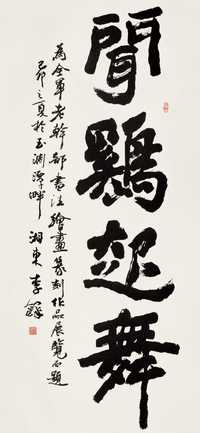 聞鷄起舞
為全軍老幹部書法繪畫篆刻作品展覽而題
己卯之夏於玉淵潭畔
湘東李鐸